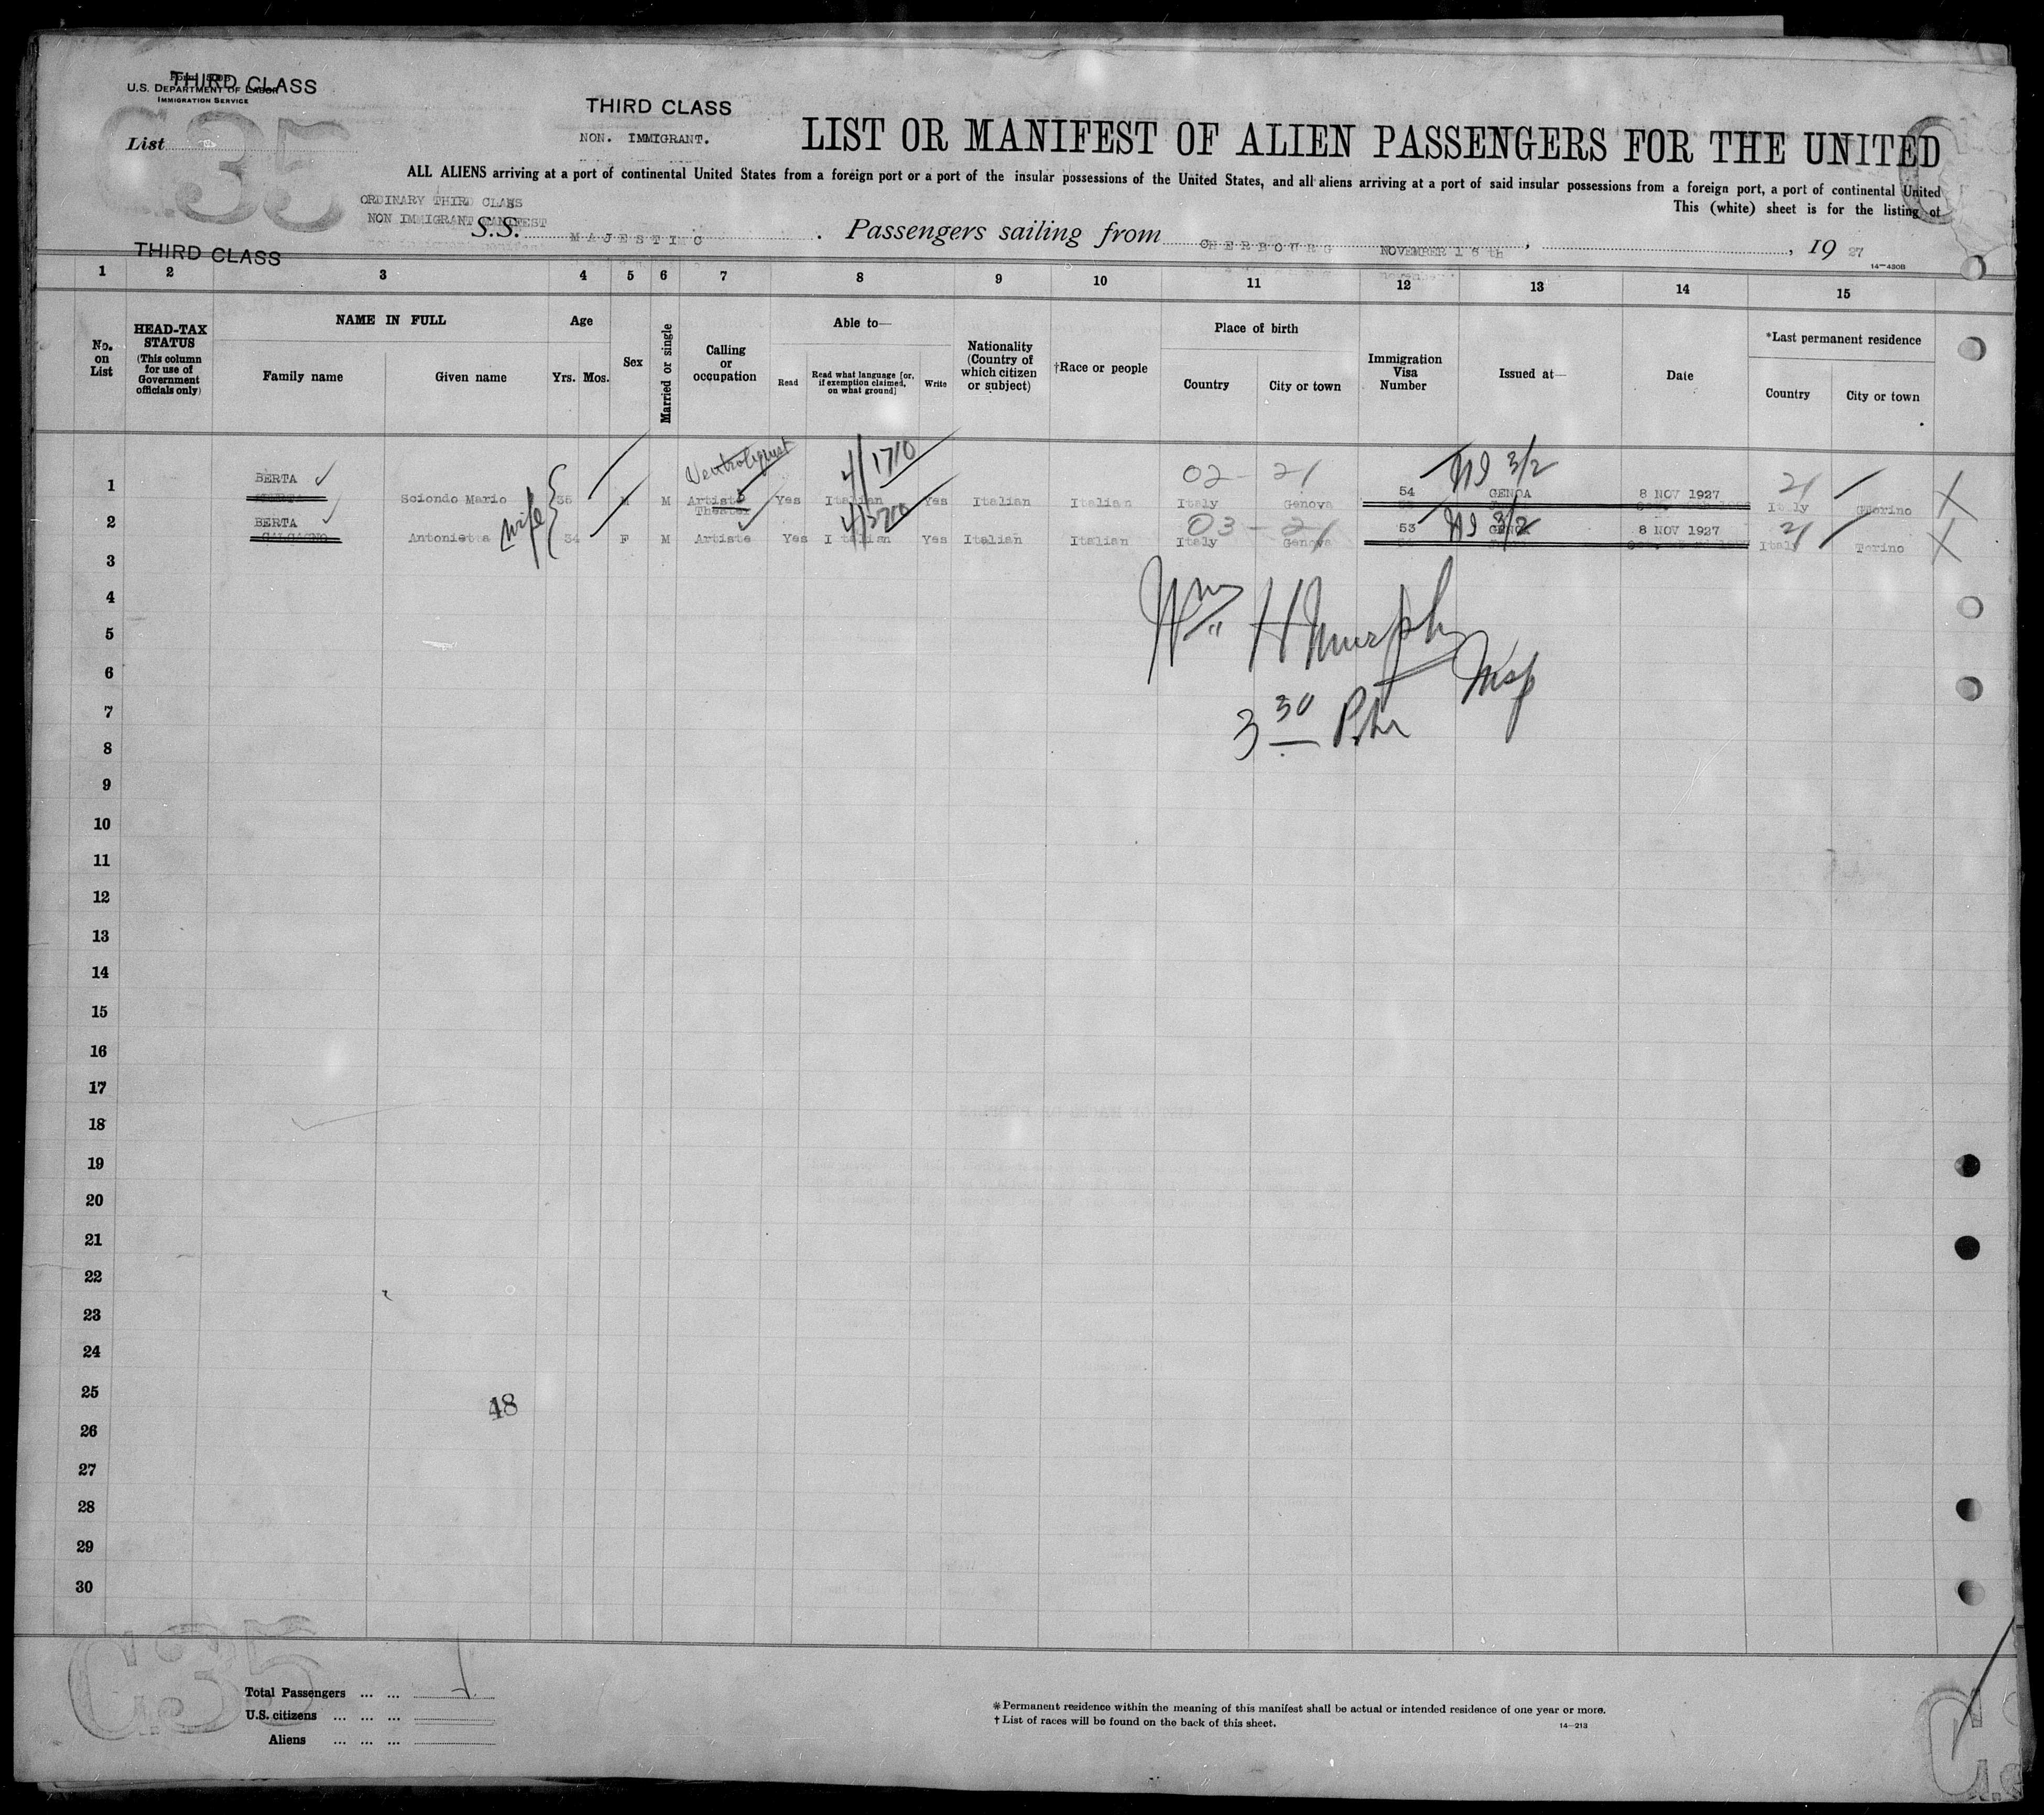 Form 500B
U.S. DEPARTMENT OF LABOR
IMMIGRATION SERVICE
THIRD CLASS
THIRD CLASS
NON. IMMIGRANT.
C35
List
LIST OR MANIFEST OF ALIEN PASSENGERS FOR THE UNITED
ALL ALIENS arriving at a port of continental United States from a foreign port or a port of the insular possessions of the United States, and all aliens arriving at a port of said insular possessions from a foreign port, a port of continental United
This (white) sheet is for the listing of
ORDINARY THIRD CLASS
NON IMMIGRANT MANIFEST
THIRD CLASS
S.S. MAJESTIC. Passengers sailing from CHERBOURG NOVEMBER 16th, 1927
14-430B
1 2 3 4 5 6 7 8 9 10 11 12 13 14 15
No. on List
HEAD-TAX STATUS (This column for use of Government officials only)
NAME IN FULL
Family name Given name
Age
Yrs. Mos.
Sex
Married or single
Calling or occupation
Able to—
Read
Read what language [or, if exemption claimed, on what ground]
Write
Nationality (Country of which citizen or subject)
†Race or people
Place of birth
Country City or town
Immigration Visa Number
Issued at—
Date
*Last permanent residence
Country City or town
Ventroliquist 4/1710 02 - 21 NI 3/2 21
1 BERTA Sciondo Mario 35 M M Artiste Yes Italian Yes Italian Italian Italy Genova 54 GENOA 8 NOV 1927 Italy Torino X
Theater
wife
4/2710 03 - 21 NI 3/2 21
2 BERTA Antonietta 34 F M Artiste Yes Italian Yes Italian Italian Italy Genova 53 GENOA 8 NOV 1927 Italy Torino X
3
4
Wm H Murphy
5
6
Insp
7
3 30 P.M.
8
9
10
11
12
13
14
15
16
17
18
19
20
21
22
23
24
25
48
26
27
28
29
30
C35
Total Passengers ... ...
U.S. citizens ... ... ...
Aliens ... ... ...
* Permanent residence within the meaning of this manifest shall be actual or intended residence of one year or more.
† List of races will be found on the back of this sheet.
14-213